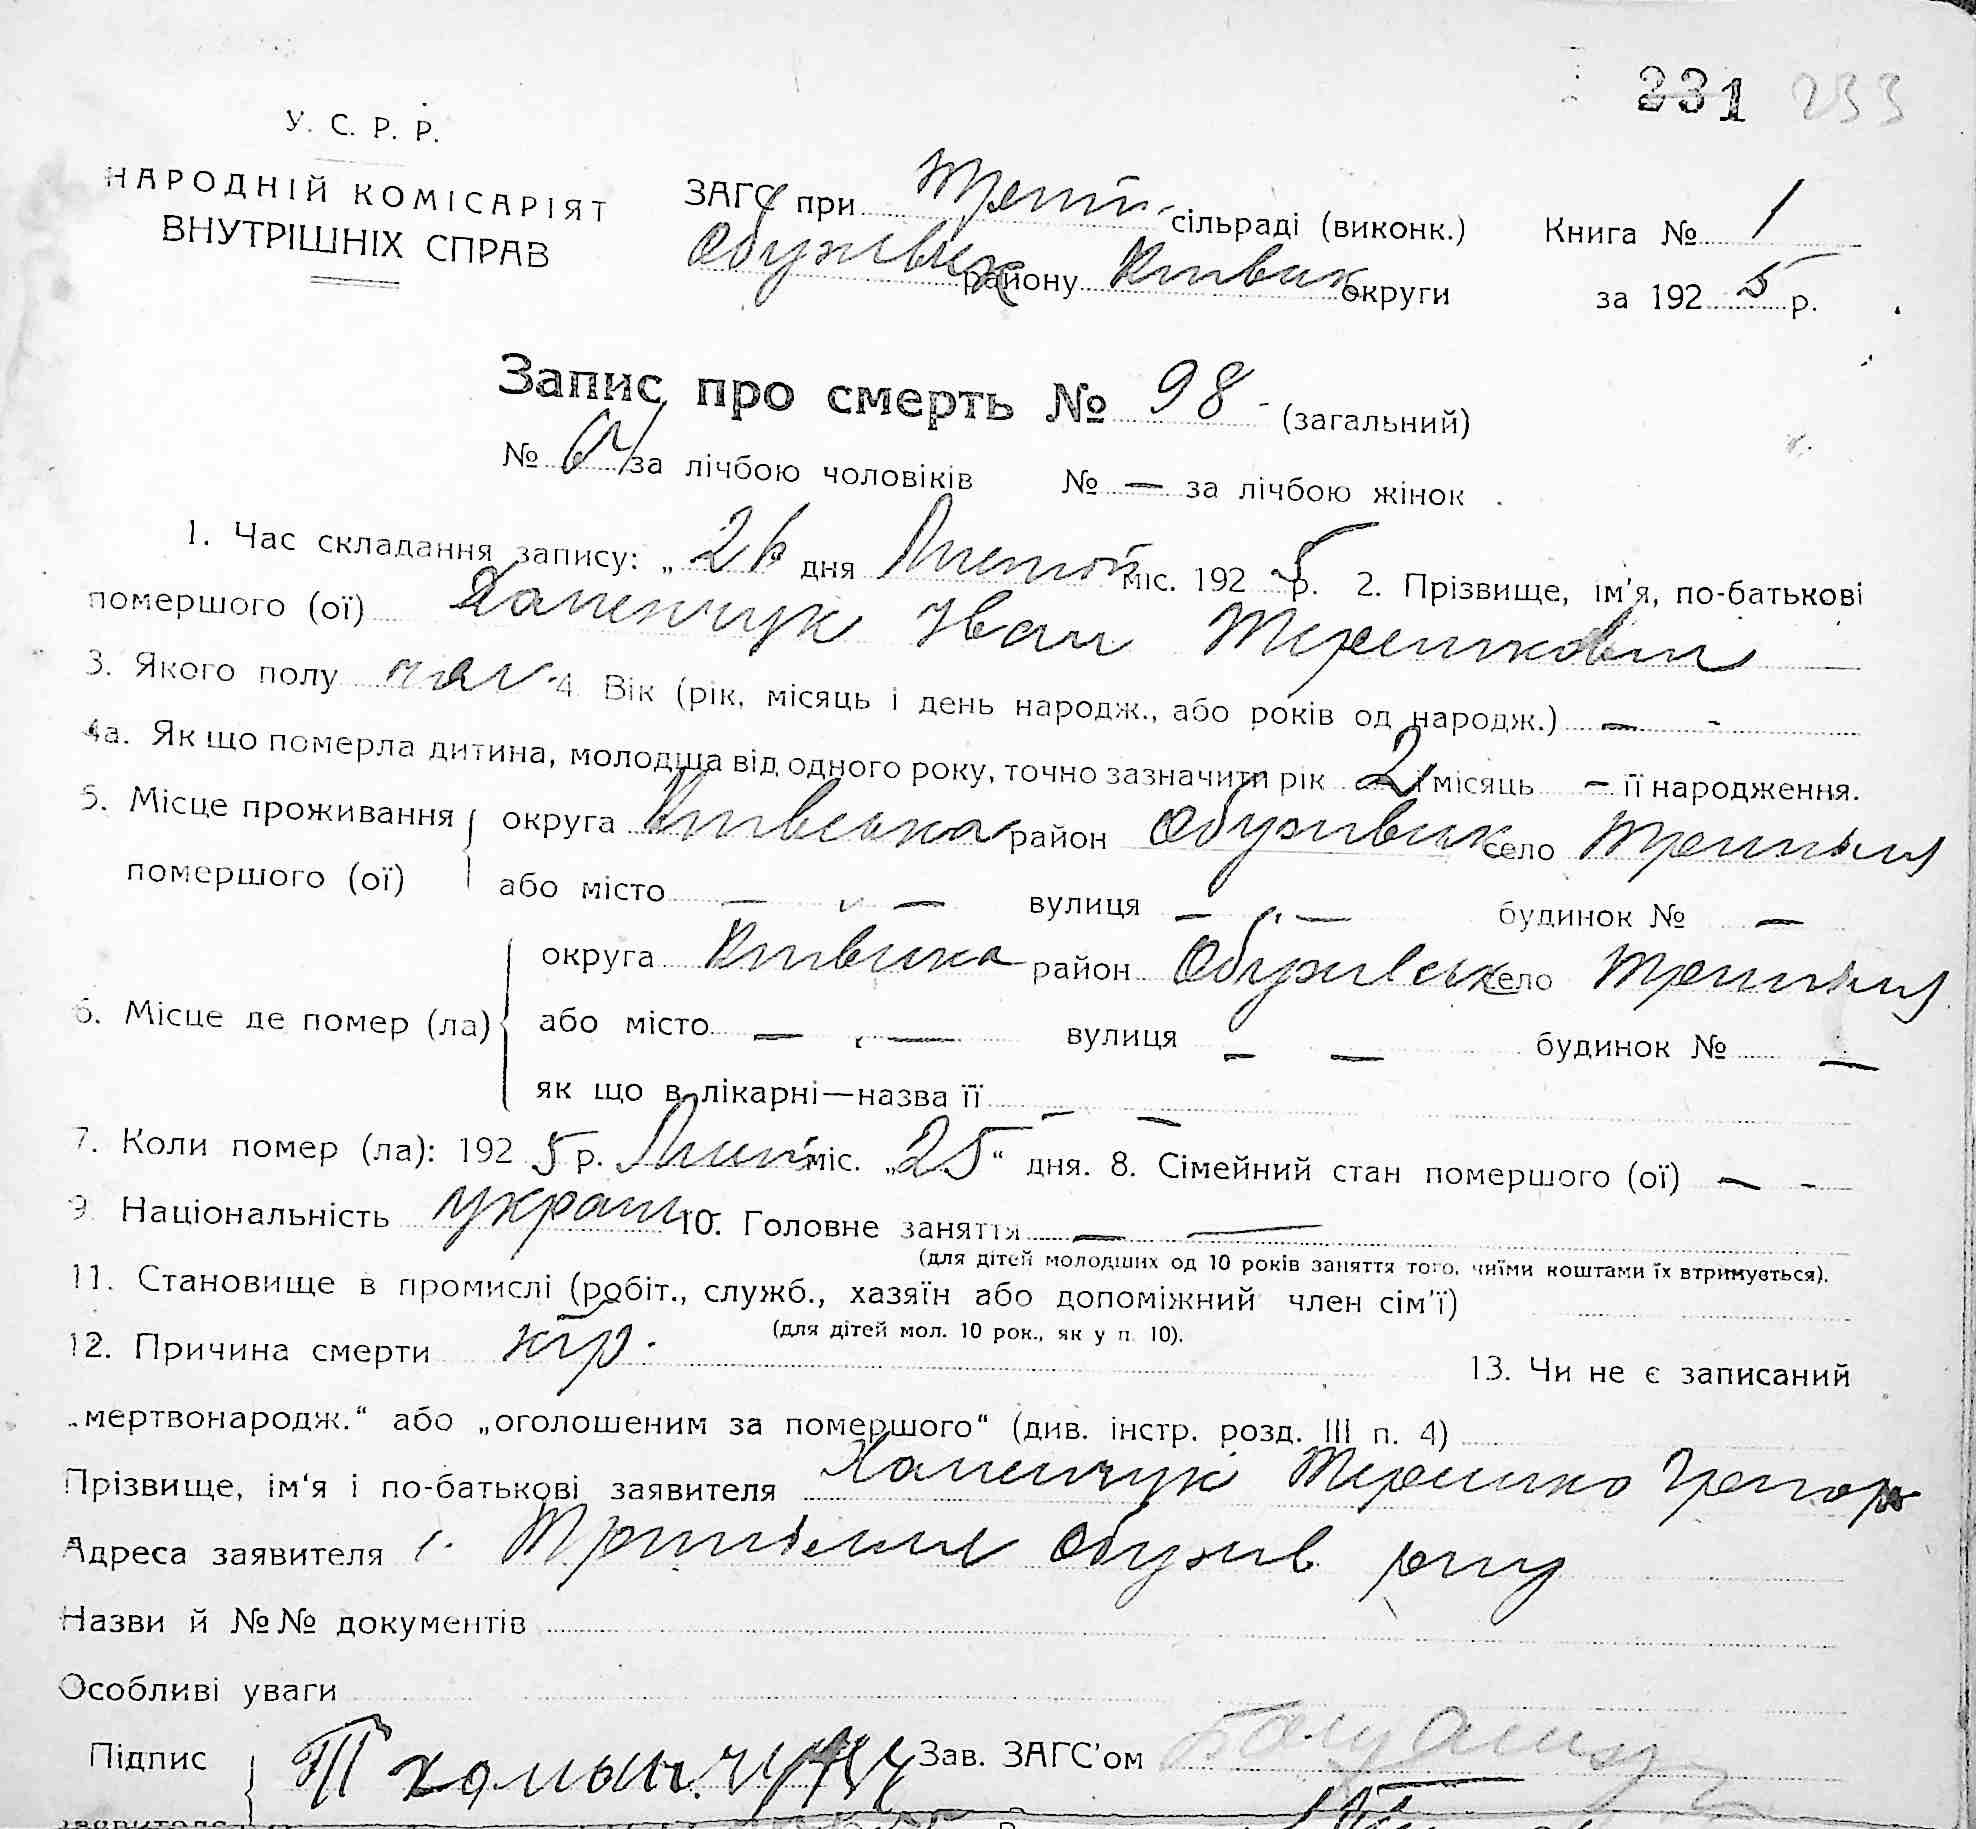 231 233
У. С. Р. Р.
НАРОДНІЙ КОМІСАРІЯТ
ВНУТРІШНІХ СПРАВ
ЗАГС при Трип. сільраді (виконк.) Книга № 1
Обухівськ району Київськ округи за 1925 р.
Запис про смерть № 98 (загальний)
№ за лічбою чоловіків № — за лічбою жінок
1. Час складання запису: „26 дня міс. 1925 р. 2. Прізвище, ім'я, по-батькові
помершого (ої) Хаменчук Іван Терешков
3. Якого полу чол. 4. Вік (рік, місяць і день народж., або років од народж.) — -
4а. Як що померла дитина, молодща від одного року, точно зазначити рік 2 і місяць – її народження.
5. Місце проживання округа Київська район Обухівськ село Трипілля
помершого (ої) або місто — — вулиця — — будинок № —
6. Місце де помер (ла) округа Київська район Обухівськ село Трипілля
або місто — — вулиця — — будинок № —
як що в лікарні—назва її — —
7. Коли помер (ла): 1925 р. міс. „25“ дня. 8. Сімейний стан помершого (ої) — -
9. Національність україн 10. Головне заняття — —
(для дітей молодших од 10 років заняття того, чиїми коштами їх втримується).
11. Становище в промислі (робіт., служб., хазяїн або допоміжний член сім'ї)
(для дітей мол. 10 рок., як у п. 10).
12. Причина смерти кір. 13. Чи не є записаний
„мертвонародж.“ або „оголошеним за помершого“ (див. інстр. розд. III п. 4)
Прізвище, ім'я і по-батькові заявителя Хаменчук Терешко Григор
Адреса заявителя с. Трипілля Обухів р-ну
Назви й №№ документів
Особливі уваги
Підпис Т Зав. ЗАГС'ом
заявителя